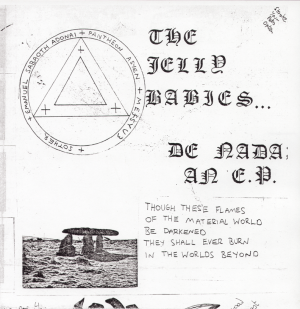 THE
JELLY
BABIES...
DE NADA;
AN E.P.
EMANUEL SABBOTH ADONAI
PANTHEON
THOUGH THESE FLAMES
OF THE MATERIAL WORLD
BE DARKENED
THEY SHALL EVER BURN
IN THE WORLDS BEYOND